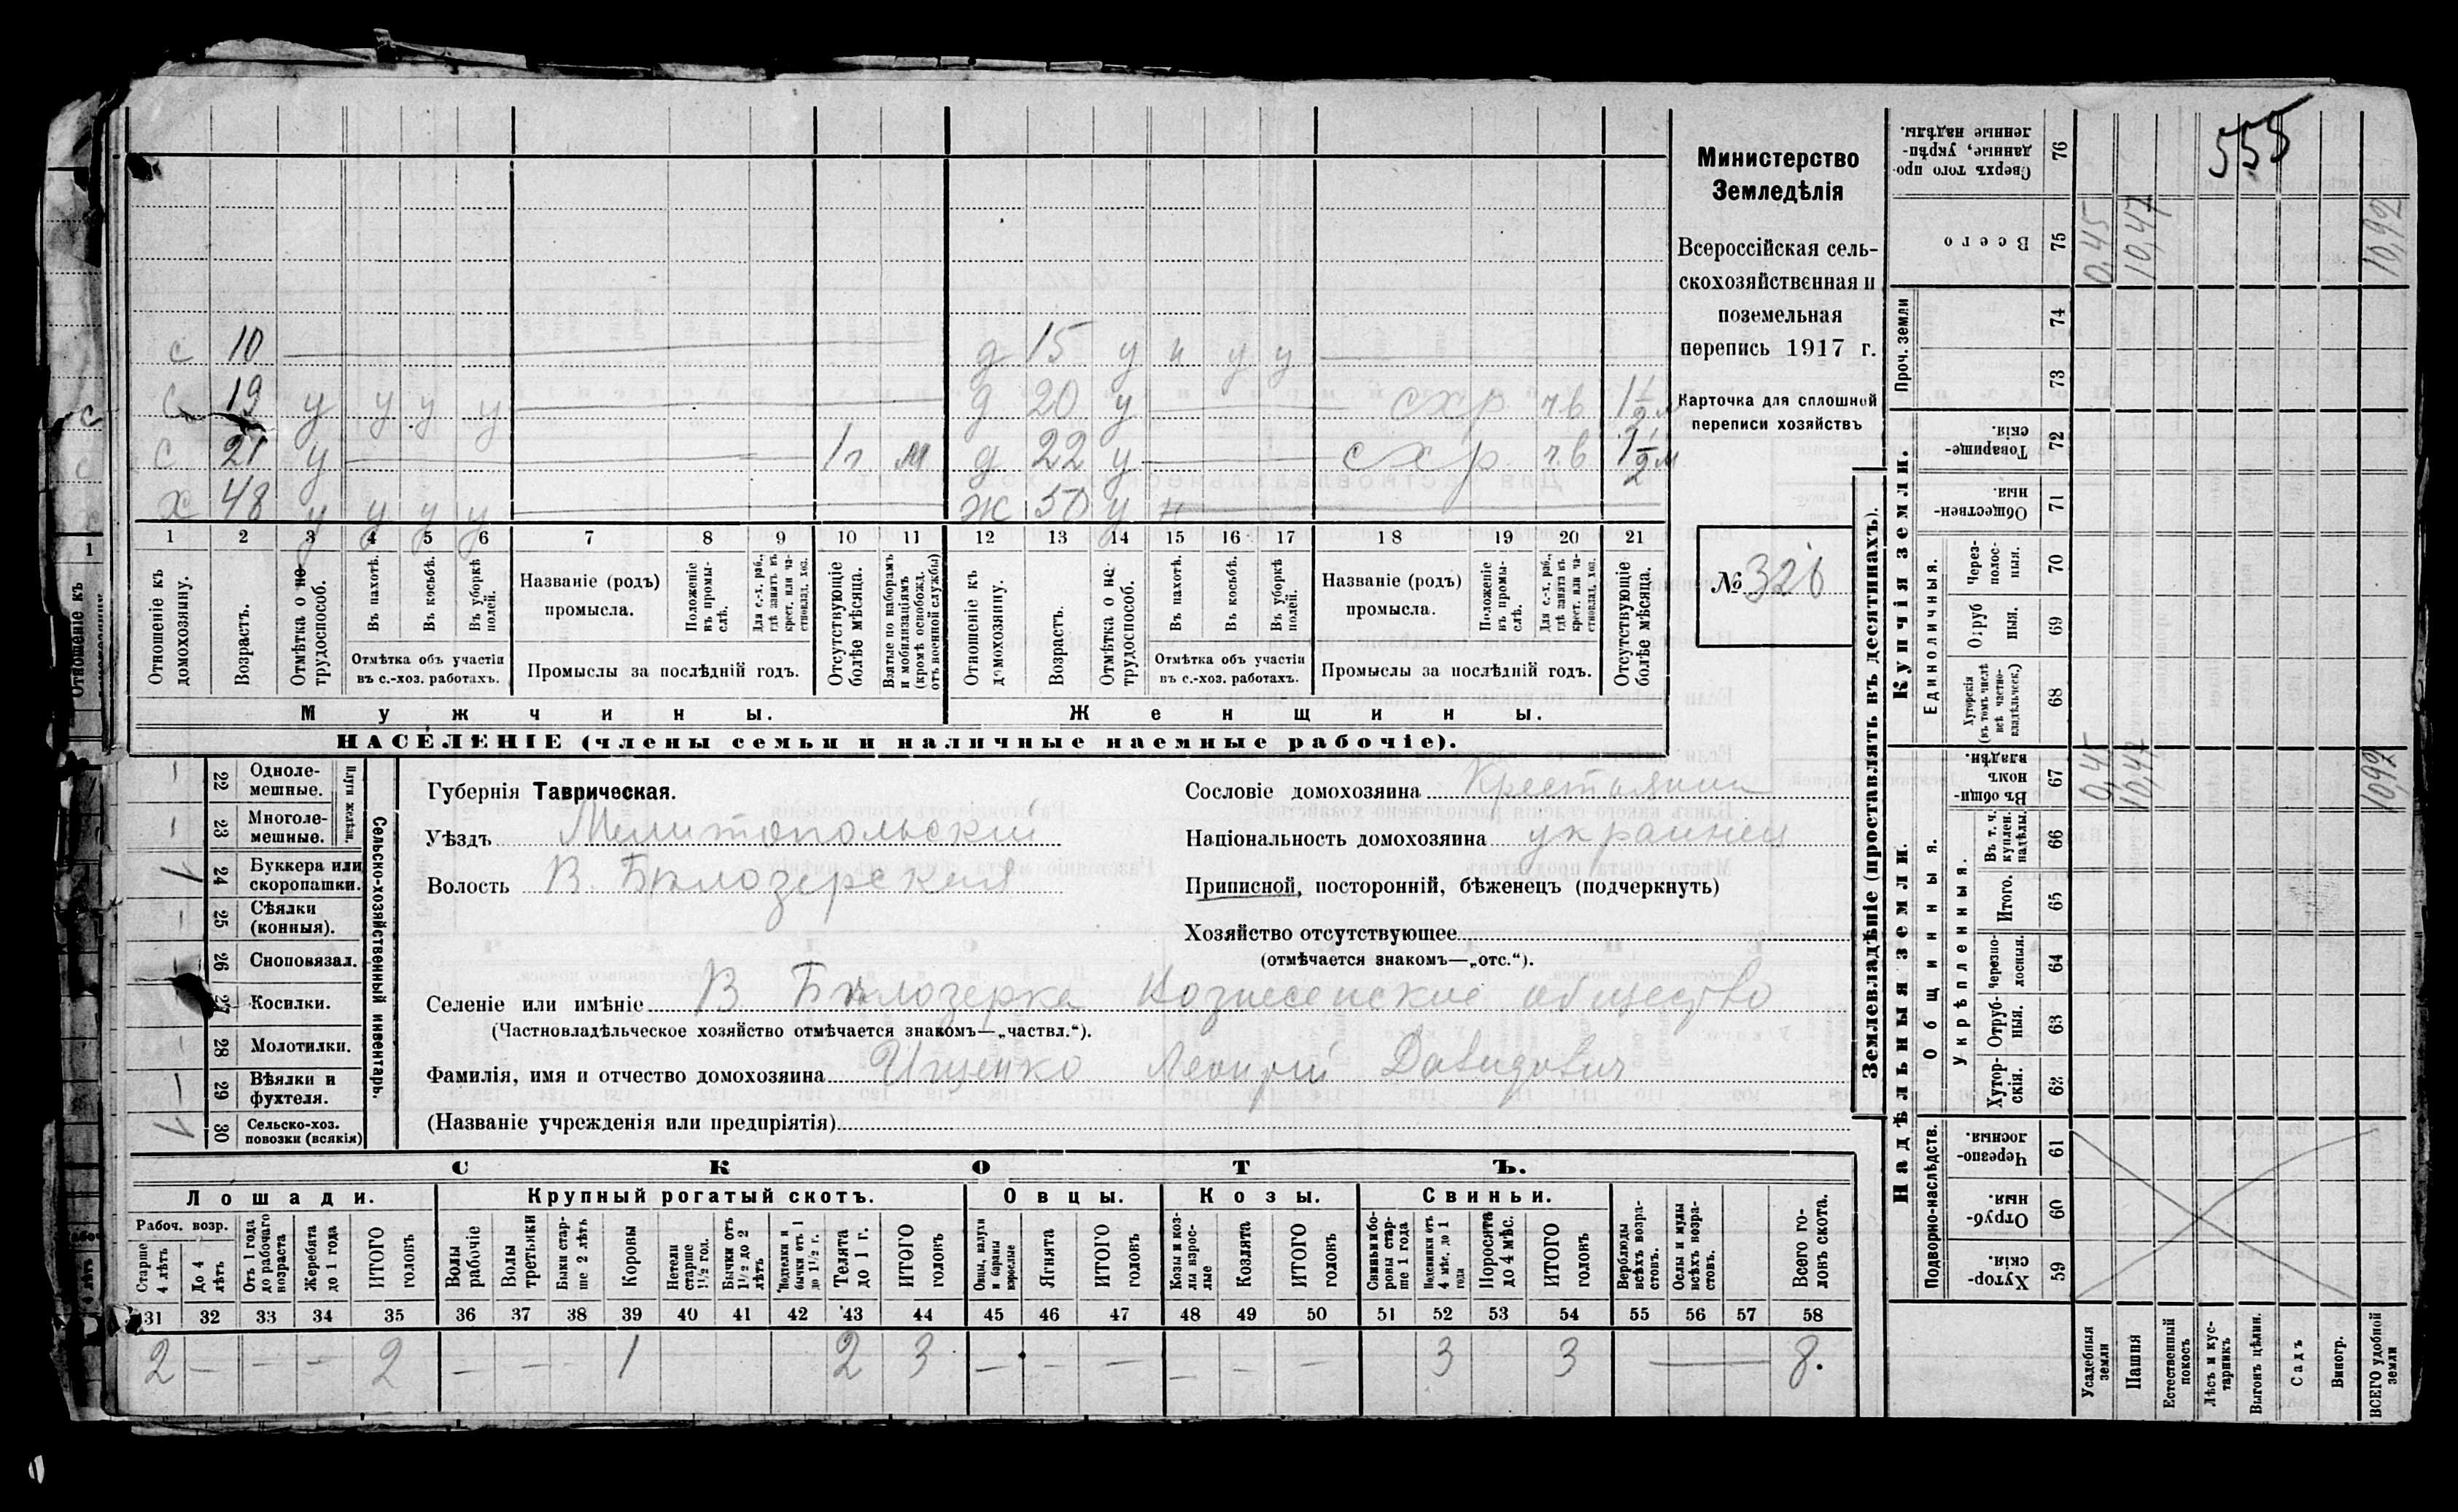 555
Министерство
Земледѣлія
Всероссійская сель-
скохозяйственная и
поземельная
перепись 1917 г.
Карточка для сплошной
переписи хозяйствъ
№ 326
с 10 д 15 у н у у
с 19 у у у у д 20 у схр чв 1½ м
с 21 у 1 г. м д 22 у схр ч.в 1½ м
х 48 у у у у ж 50 у н
1 2 3 4 5 6 7 8 9 10 11 12 13 14 15 16 17 18 19 20 21
Отношеніе къ домохозяину.
Возрастъ.
Отмѣтка о не трудоспособ.
Въ пахотѣ.
Въ косьбѣ.
Въ уборкѣ полей.
Отмѣтка объ участіи въ с.-хоз. работахъ.
Названіе (родъ) промысла.
Положеніе въ промы-слѣ.
Для с.-х. раб., гдѣ занятъ въ крест. или ча-стновлад. хоз.
Промыслы за послѣдній годъ.
Отсутствующіе болѣе мѣсяца.
Взятые по наборамъ и мобилизаціямъ (кромѣ освобожд. отъ военной службы)
Отношеніе къ домохозяину.
Возрастъ.
Отмѣтка о не трудоспособ.
Въ пахотѣ.
Въ косьбѣ.
Въ уборкѣ полей.
Отмѣтка объ участіи въ с.-хоз. работахъ.
Названіе (родъ) промысла.
Положеніе въ промы-слѣ.
Для с.-х. раб., гдѣ занятъ въ крест. или ча-стновлад. хоз.
Промыслы за послѣдній годъ.
Отсутствующіе болѣе мѣсяца.
Мужчины. Женщины.
НАСЕЛЕНІЕ (члены семьи и наличные наемные рабочіе).
Сельско-хозяйственный инвентарь.
Плуги желѣзн.
22 Одноле-мешные. —
23 Многоле-мешные. —
24 Буккера или скоропашки. 1
25 Сѣялки (конныя). —
26 Сноповязал. —
27 Косилки.
28 Молотилки. —
29 Вѣялки и фухтеля. —
30 Сельско-хоз. повозки (всякія) 1
Губернія Таврическая.
Уѣздъ Мелитопольскій
Волость В. Бѣлозерская
Сословіе домохозяина Крестьянин
Національность домохозяина украинец
Приписной, посторонній, бѣженец (подчеркнуть)
Хозяйство отсутствующее
(отмѣчается знакомъ—„отс.“).
Селеніе или имѣніе В. Бѣлозерка Вознесенское общество
(Частновладѣльческое хозяйство отмѣчается знакомъ—„частвл.“).
Фамилія, имя и отчество домохозяина Ищенко Леонтій Давидович
(Названіе учрежденія или предпріятія)
СКОТЪ.
Лошади. Крупный рогатый скотъ. Овцы. Козы. Свиньи.
Рабоч. возр.
Старше 4 лѣтъ
До 4 лѣтъ
Отъ 1 года до рабочаго возраста
Жеребята до 1 года
ИТОГО головъ
Волы рабочіе
Волы третьяки
Быки стар-ше 2 лѣтъ
Коровы
Нетели старше 1½ год.
Бычки отъ 1½ до 2 лѣтъ
Телята до 1 г.
ИТОГО головъ
Овцы, валухи и бараны взрослые
Ягнята
ИТОГО головъ
Козы и коз-лы взрос-лые
Козлята
ИТОГО головъ
Свиньи и бо-ровы стар-ше 1 года
Подсвинки отъ 4 мѣс. до 1 года
Поросята до 4 мѣс.
ИТОГО головъ
Верблюды всѣхъ возра-стовъ.
Ослы и мулы всѣхъ возра-стовъ.
Всего го-ловъ скота.
31 32 33 34 35 36 37 38 39 40 41 42 43 44 45 46 47 48 49 50 51 52 53 54 55 56 57 58
2 — — — 2 — — — 1 2 3 — — — — — — 3 3 — 8.
Землевладѣніе (проставлять въ десятинахъ).
Купчія земли.
Надѣльныя земли.
Сверхъ того про-данные, укрѣп-ленные надѣлы. 76
Всего 75 0,45 10,47 10,92
Проч. земли 74 73
Товарище-скія. 72
Обществен-ныя. 71
Единоличныя.
Через-полос-ныя. 70
Отруб-ныя. 69
Хуторскія (въ томъ числѣ всѣ частно-владѣльческ.) 68
Общинныя.
Въ общи-номъ владѣн. 67 0,45 10,47 10,92
Укрѣпленныя.
Въ т. ч. куплен. надѣлы. 66
Итого. 65
черезпо-лосныя. 64
Отруб-ныя. 63
Хутор-скія. 62
Подворно-наслѣдств.
Черезпо-лосныя. 61
Отруб-ныя. 60
Хутор-скія. 59
Усадебныя земли
Пашня
Естественный покосъ
Лѣсъ и кус-тарникъ
Выгонъ цѣлин.
Садъ
Виногр.
ВСЕГО удобной земли